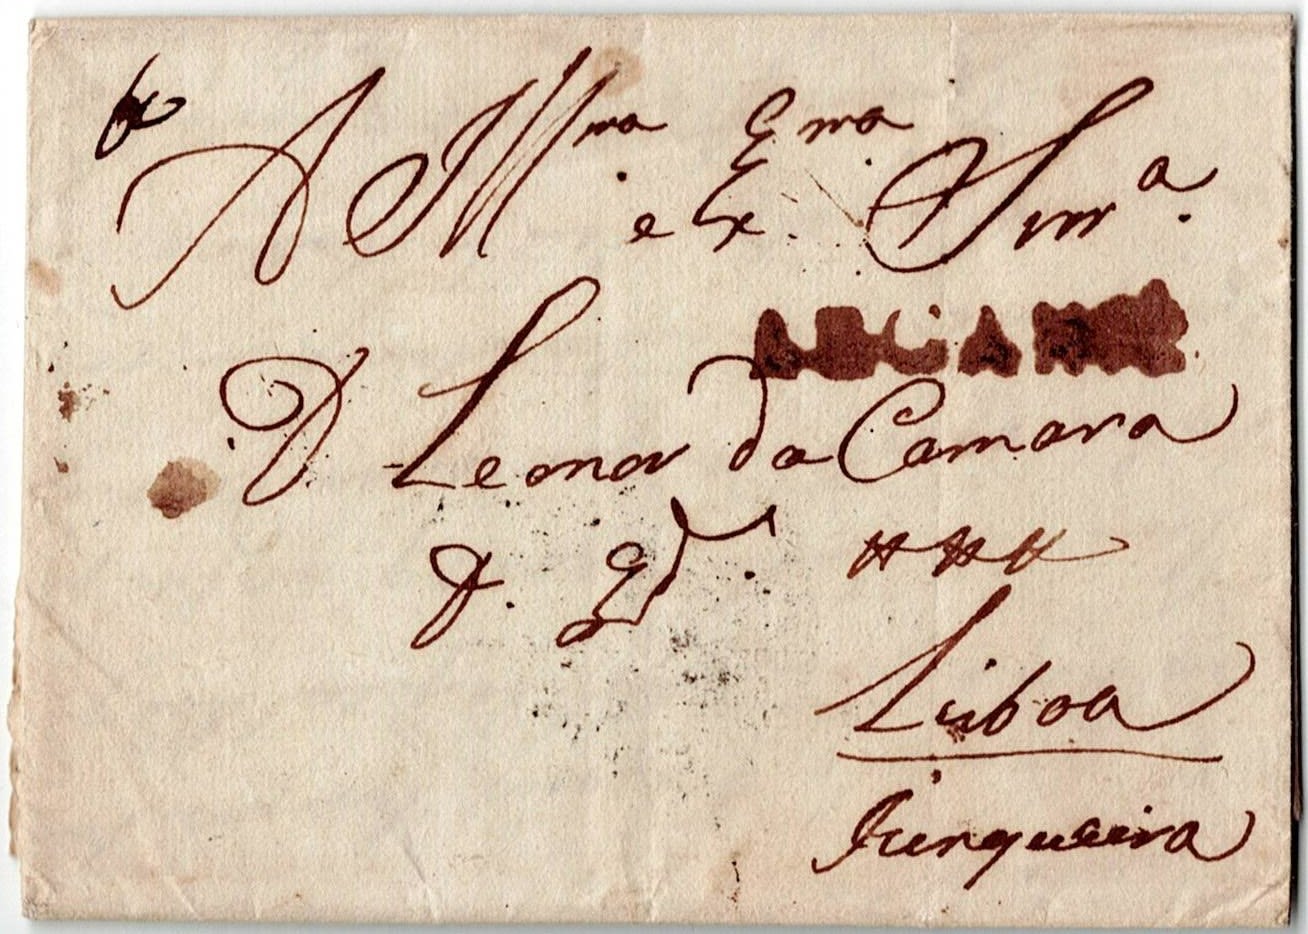 A Illma. e Exma. Snra.
D. Leonor da Camara
D. gde.
Lisboa
Junqueira